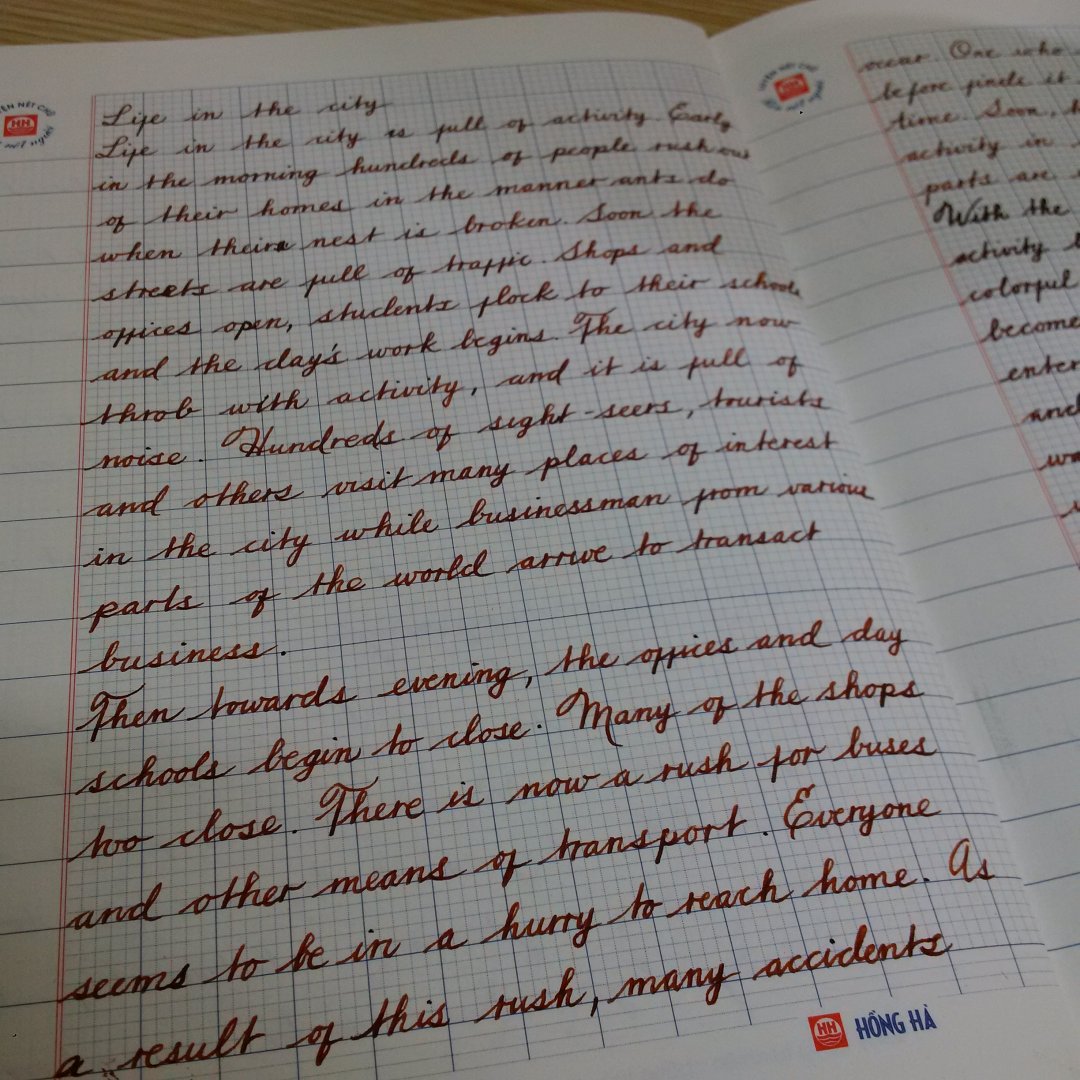 Life in the city
Life in the city is full of activity. Early
in the morning hundreds of people rush out
of their homes in the manner ants do
when their nest is broken. Soon the
streets are full of traffic. Shops and
offices open, students flock to their schools
and the day's work begins. The city now
throb with activity, and it is full of
noise. Hundreds of sight-seers, tourists
and others visit many places of interest
in the city while businessman from various
parts of the world arrive to transact
business.
Then towards evening, the offices and day
schools begin to close. Many of the shops
too close. There is now a rush for buses
and other means of transport. Everyone
seems to be in a hurry to reach home. As
a result of this rush, many accidents
HH HỒNG HÀ
occur. One who
before finds it
time. Soon,
activity in
parts are
With the
activity
colorful
become
enter
and